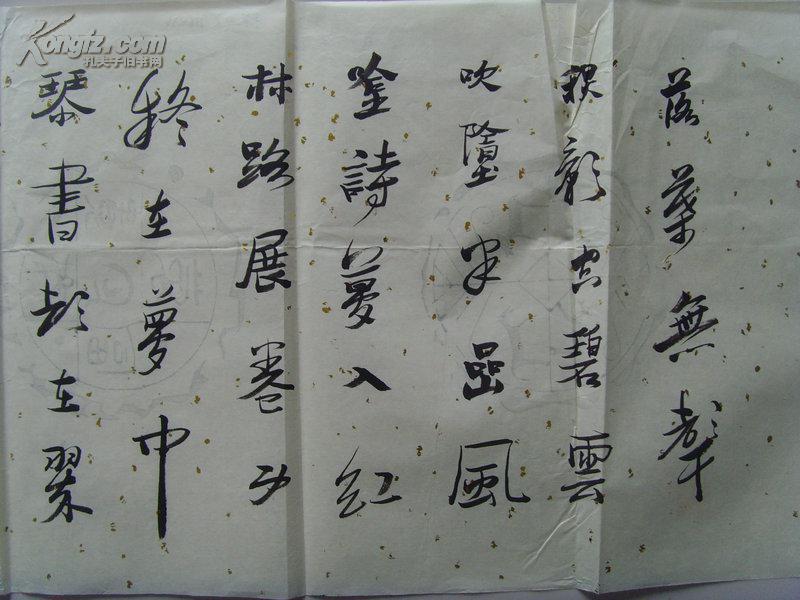 Kongfz.com
孔夫子旧书网
落葉無聲
影空碧雲
吹墮半嵒風
詩夢入紅
林路展卷
在夢中
琴書影在翠